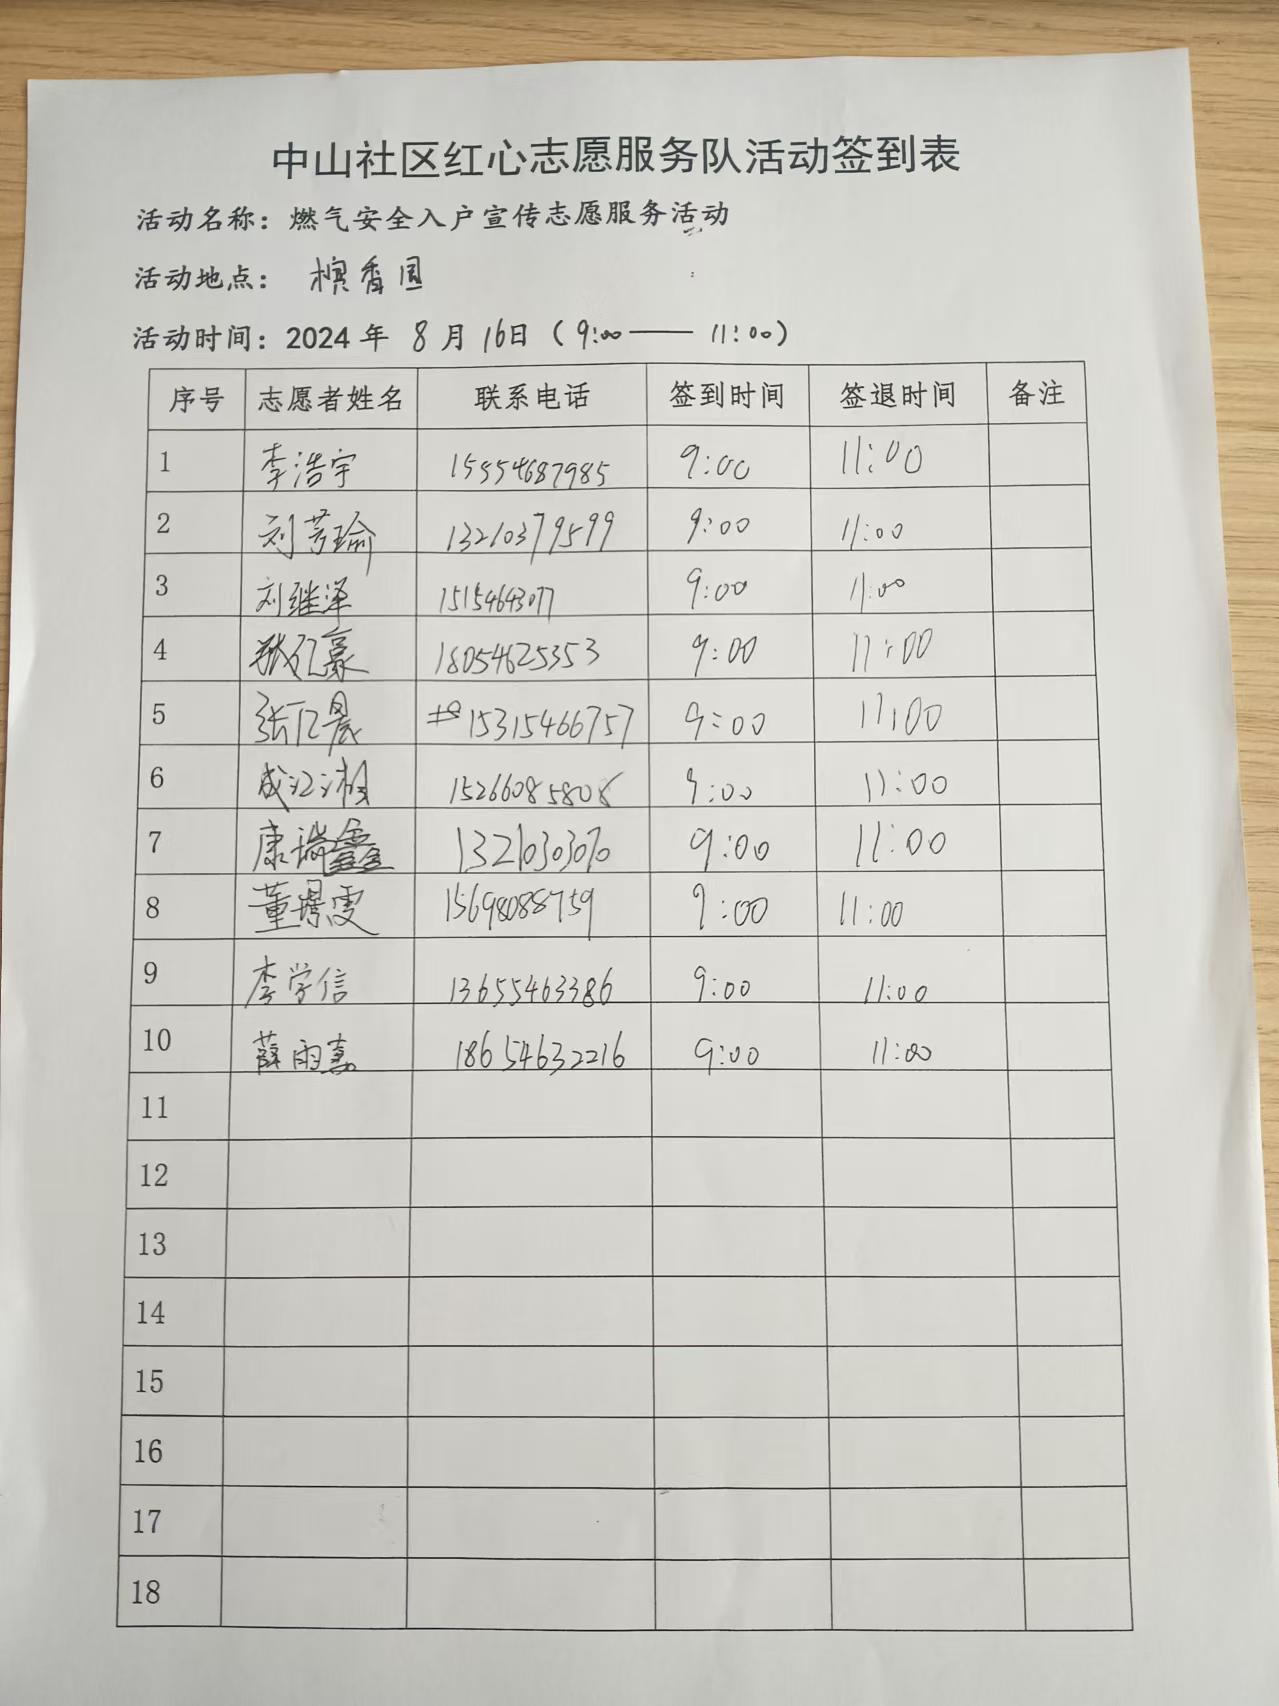 中山社区红心志愿服务队活动签到表
活动名称：燃气安全入户宣传志愿服务活动
活动地点：槟香园
活动时间：2024年 8月16日（9:00——11:00）
序号 志愿者姓名 联系电话 签到时间 签退时间 备注
1 李浩宇 15554687985 9:00 11:00
2 刘芳瑜 13210379599 9:00 11:00
3 刘继泽 15154643077 9:00 11:00
4 张亿豪 18054625353 9:00 11:00
5 张亿晨 15315466757 9:00 11:00
6 成江湘 15266085808 9:00 11:00
7 康瑞鑫 9:00 11:00
8 董璟雯 15698088759 9:00 11:00
9 李学信 13655463386 9:00 11:00
10 薛雨嘉 18654632216 9:00 11:00
11
12
13
14
15
16
17
18